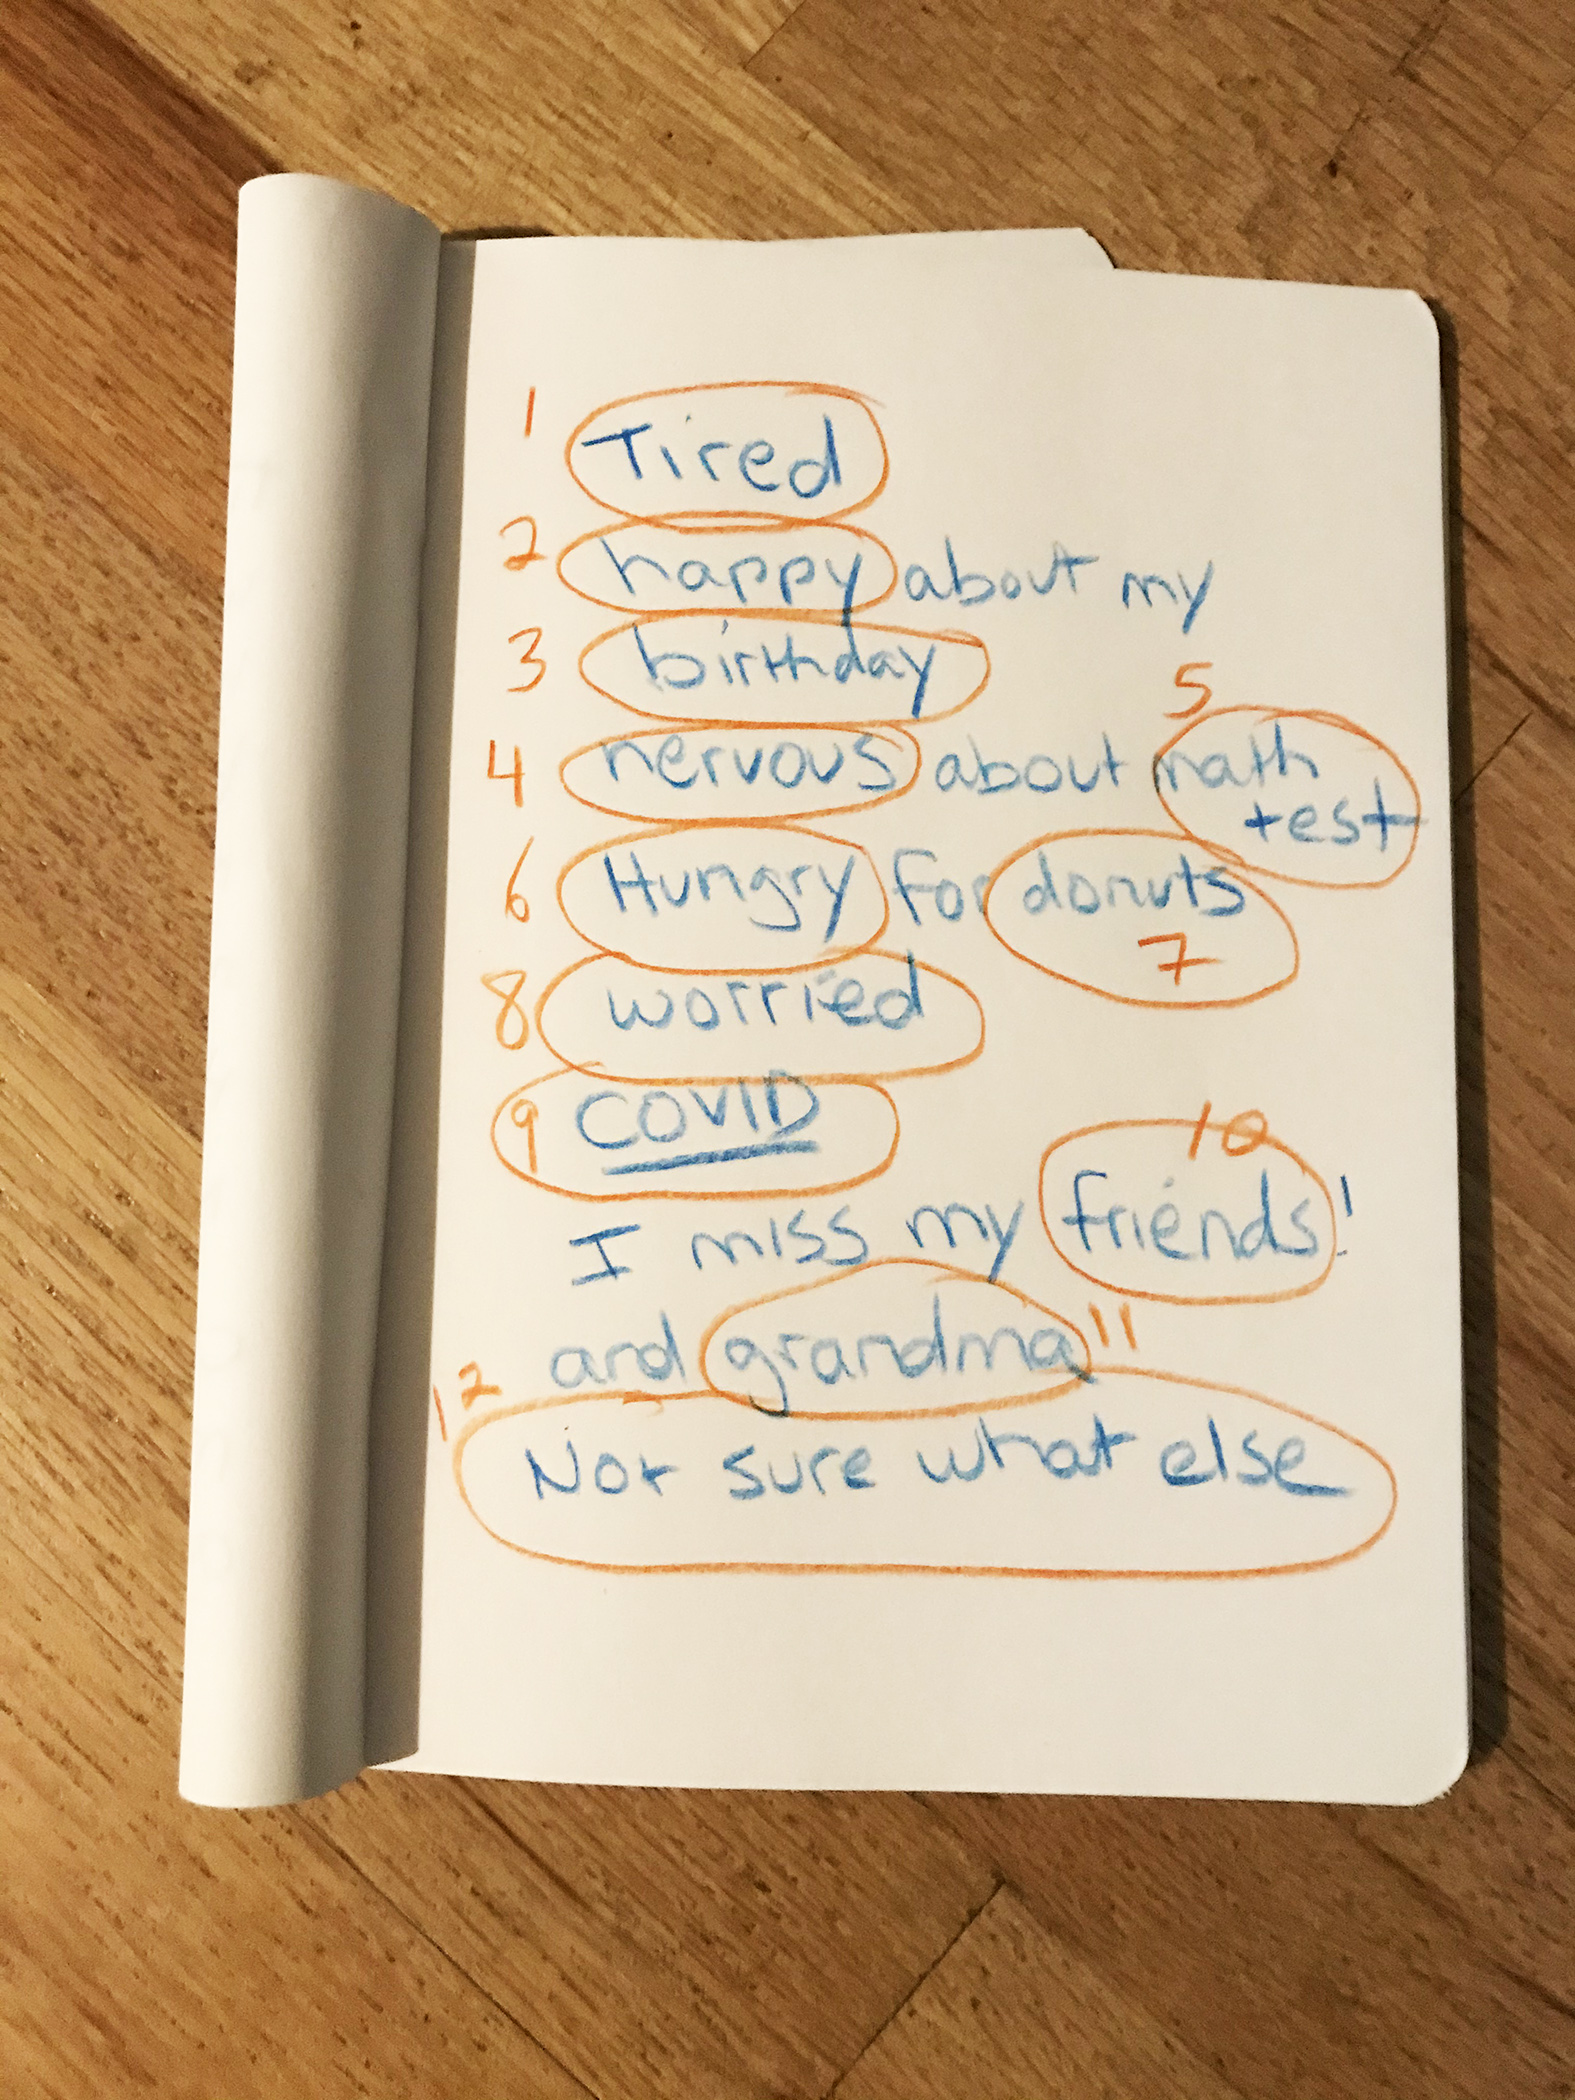 1 Tired
2 happy about my
3 birthday
5
4 nervous about math
test
6 Hungry for donuts
7
8 worried
9 COVID
10
I miss my friends!
and grandma 11
12
Not sure what else